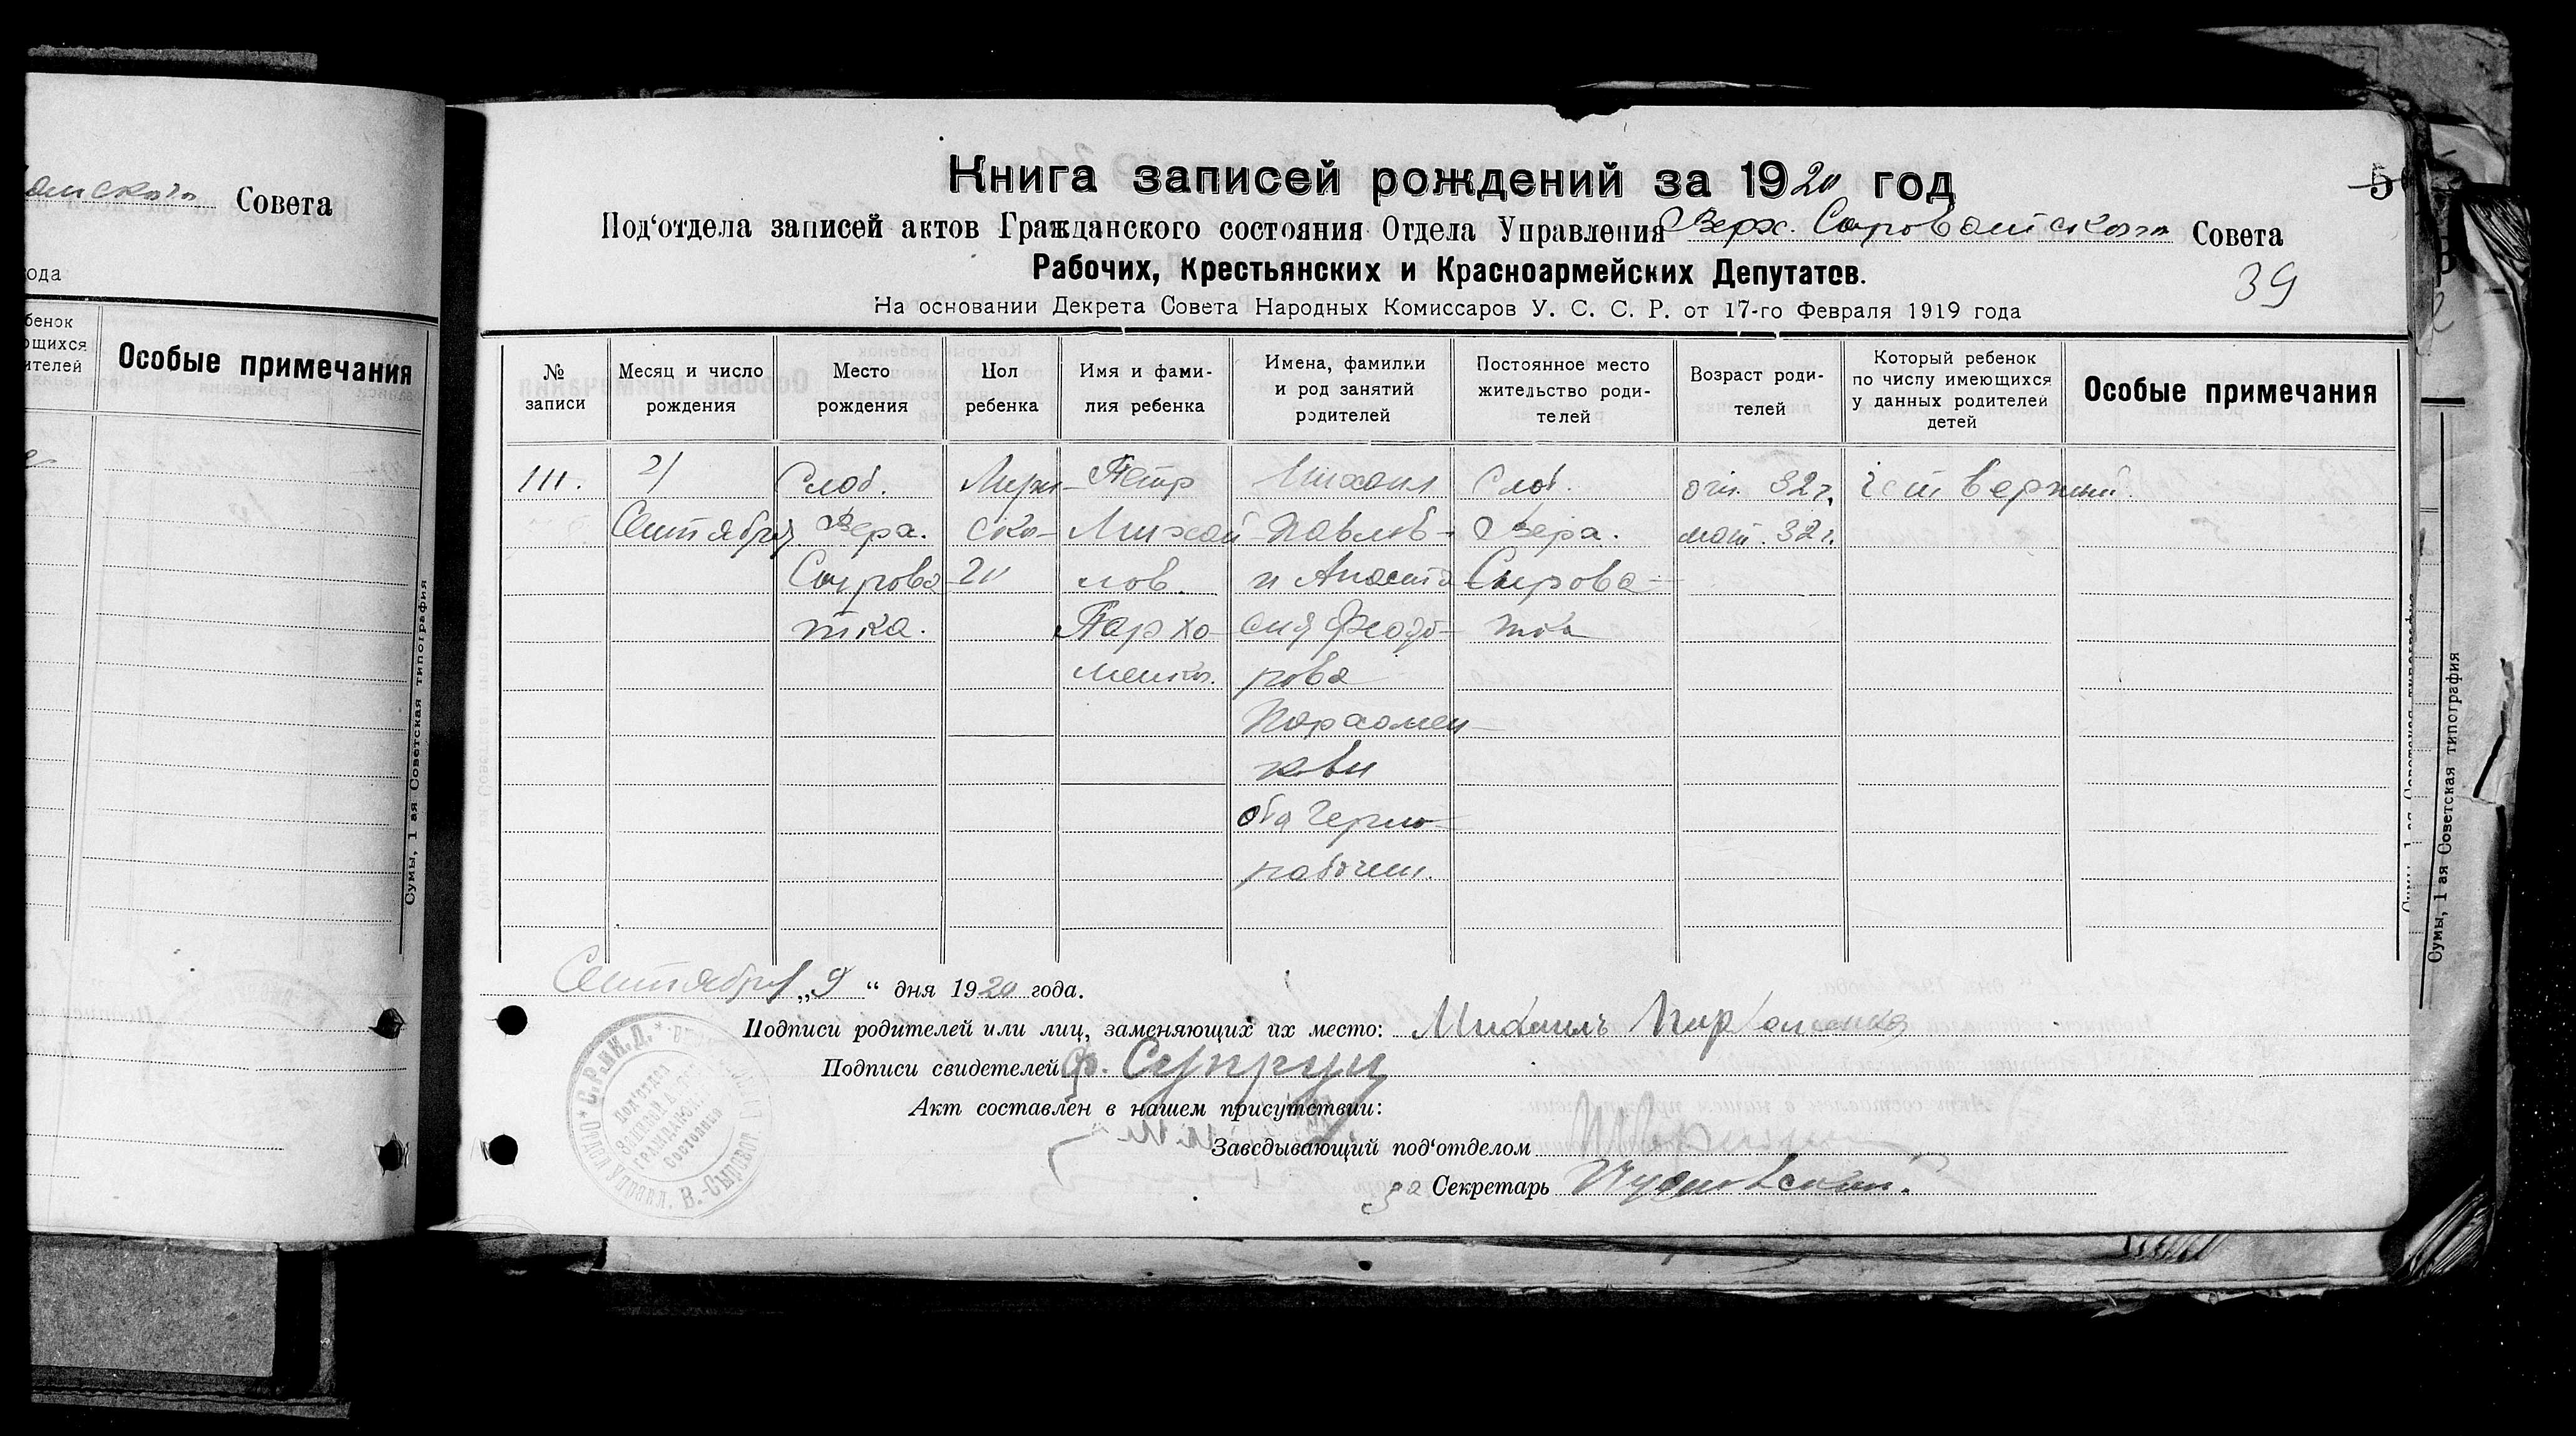 Совета
ода
бенок
ющихся
ителей
Особые примечания
Сумы, 1 ая Советская типография
Книга записей рождений за 1920 год
5
Под‘отдела записей актов Гражданского состояния Отдела Управления Верх. Сыроватского Совета
Рабочих, Крестьянских и Красноармейских Депутатов.
39
На основании Декрета Совета Народных Комиссаров У. С. С. Р. от 17-го Февраля 1919 года
№ записи
Месяц и число рождения
Место рождения
Пол ребенка
Имя и фами-
лия ребенка
Имена, фамилии
и род занятий
родителей
Постоянное место
жительство роди-
телей
Возраст роди-
телей
Который ребенок
по числу имеющихся
у данных родителей
детей
Особые примечания
111.
Сентября
Слоб.
Верх.
Сырова
тка.
Муж-
ско-
го
Петр
Михай
лов.
Пархо-
менко.
Михаил
Павлов-
и Анаста
сия Феодо-
рова
Пархомен-
ковы
оба черно-
рабочии.
Слоб.
Верх.
Сырова-
тка
от. 32 г.
мат. 32 г.
четвертый.
Сентября „9“ дня 1920 года.
Подписи родителей или лиц, заменяющих их место: Михаилъ Пархоменко
Подписи свидетелей Ф. Супрун
Акт составлен в нашем присутствии:
Заведывающий под‘отделом
за Секретарь
С.Р.и К.Д.
Отдел Управл. В.-Сыроват
Под‘отдел
Записей А
Граждан.
Состояния
Сумы, 1 ая Советская типография